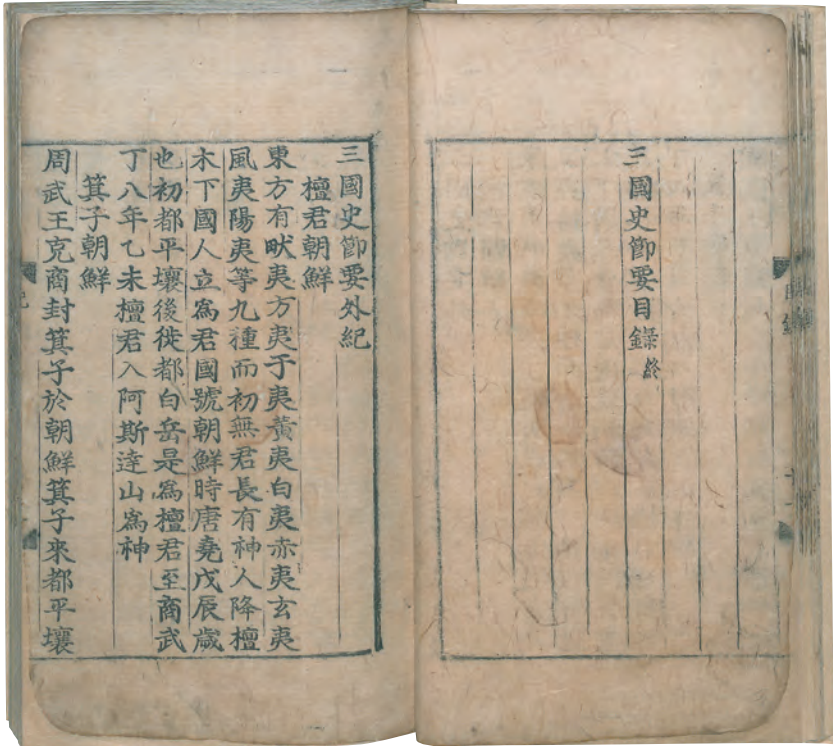 三國史節要目錄終
三國史節要外紀
檀君朝鮮
東方有畎夷方夷于夷黃夷白夷赤夷玄夷
風夷陽夷等九種而初無君長有神人降檀
木下國人立爲君國號朝鮮時唐堯戊辰歲
也初都平壤後徙都白岳是爲檀君至商武
丁八年乙未檀君入阿斯達山爲神
箕子朝鮮
周武王克商封箕子於朝鮮箕子來都平壤